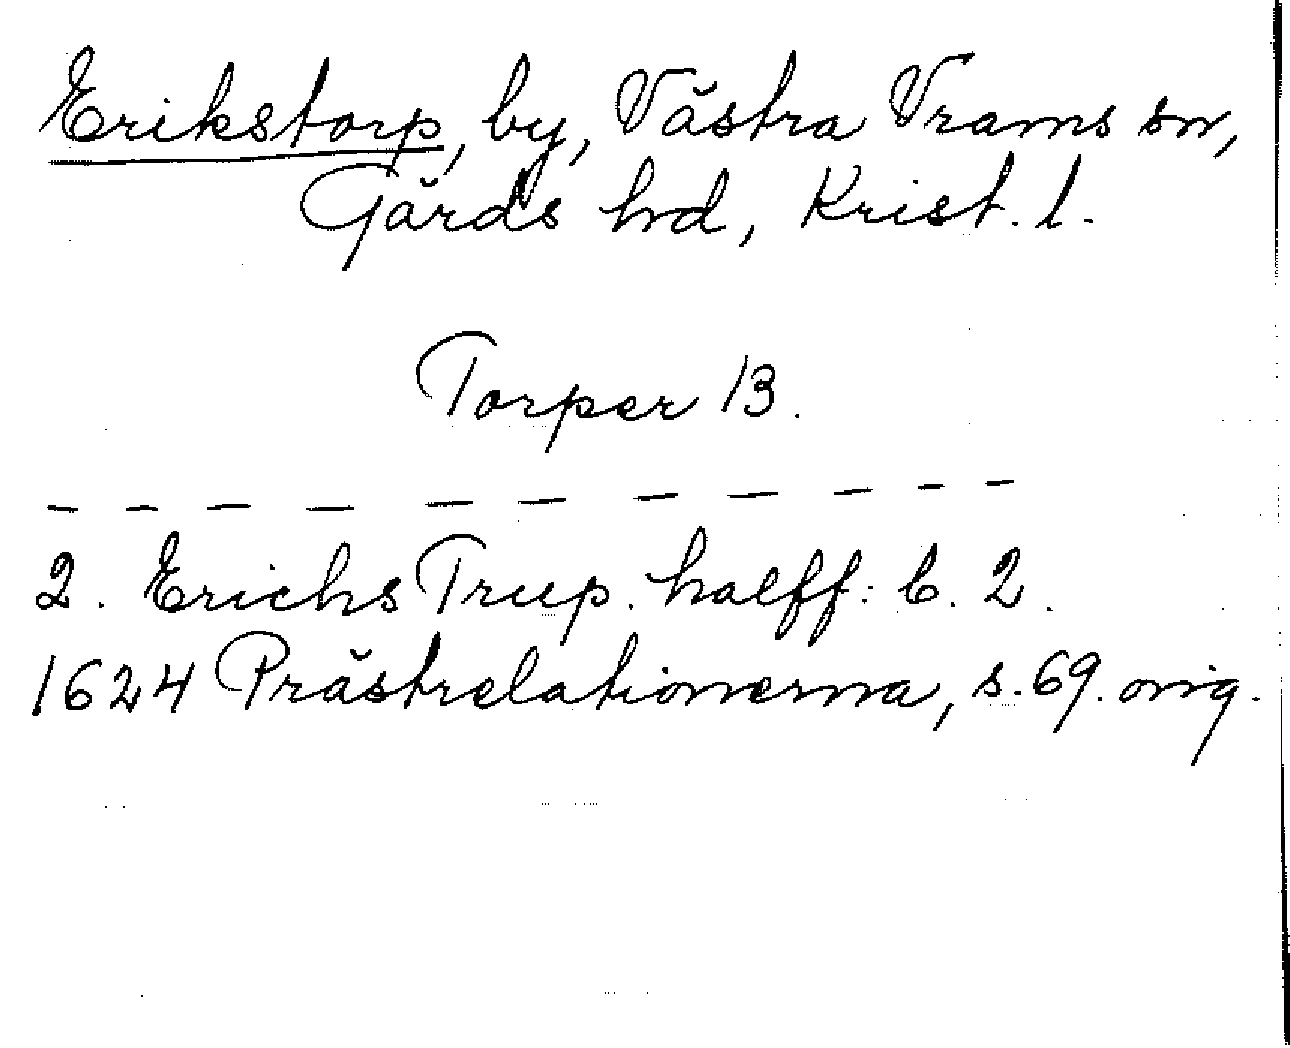 Erikstorp, by, Västra Vrams sn,
Gärds hd, Krist. l.
Torper 13.
2. Erichs Trup. halff: b. 2.
1624 Prästrelationerna, s. 69. orig.